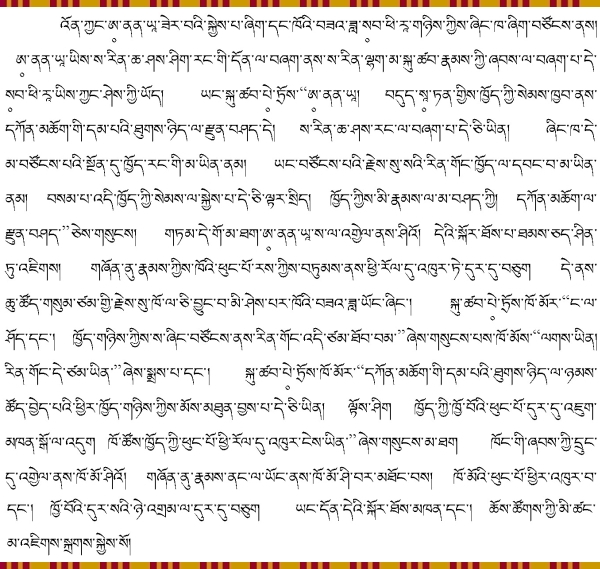 འོན་ཀྱང་ཨ༹་ནན་ཡཱ་ཟེར་བའི་སྐྱེས་པ་ཞིག་དང་ཁོའི་བཟའ་ཟླ་ས༹བ་ཕི་རཱ་གཉིས་ཀྱིས་ཞིང་ཁ་ཞིག་བཙོངས་ནས།
ཨ༹་ནན་ཡཱ་ཡིས་ས་རིན་ཆ་ཤས་ཤིག་རང་གི་དོན་ལ་བཞག་ནས་ས་རིན་ལྷག་མ་སྐུ་ཚབ་རྣམས་ཀྱི་ཞབས་ལ་བཞག་པ་དེ་
ས༹བ་ཕི་རཱ་ཡིས་ཀྱང་ཤེས་ཀྱི་ཡོད། ཡང་སྐུ་ཚབ་པེ༹་ཏྲོས་“ཨ༹་ནན་ཡཱ། བདུད་སཱ༹་ཏན་གྱིས་ཁྱོད་ཀྱི་སེམས་ཁྱབ་ནས་
དཀོན་མཆོག་གི་དམ་པའི་ཐུགས་ཉིད་ལ་རྫུན་བཤད་དེ། ས་རིན་ཆ་ཤས་རང་ལ་བཞག་པ་དེ་ཅི་ཡིན། ཞིང་ཁ་དེ་
མ་བཙོངས་པའི་སྔོན་དུ་ཁྱོད་རང་གི་མ་ཡིན་ནམ། ཡང་བཙོངས་པའི་རྗེས་སུ་སའི་རིན་གོང་ཁྱོད་ལ་དབང་བ་མ་ཡིན་
ནམ། བསམ་པ་འདི་ཁྱོད་ཀྱི་སེམས་ལ་སྐྱེས་པ་དེ་ཅི་ལྟར་སྲིད། ཁྱོད་ཀྱིས་མི་རྣམས་ལ་མ་བཤད་ཀྱི། དཀོན་མཆོག་ལ་
རྫུན་བཤད་”ཅེས་གསུངས། གཏམ་དེ་གོ་མ་ཐག་ཨ༹་ནན་ཡཱ་ས་ལ་འགྱེལ་ནས་ཤིའོ། དེའི་སྐོར་ཐོས་པ་ཐམས་ཅད་ཤིན་
ཏུ་འཇིགས། གཞོན་ནུ་རྣམས་ཀྱིས་ཁོའི་ཕུང་པོ་རས་ཀྱིས་བཏུམས་ནས་ཕྱི་རོལ་དུ་འཁུར་ཏེ་དུར་དུ་བཅུག དེ་ནས་
ཆུ་ཚོད་གསུམ་ཙམ་གྱི་རྗེས་སུ་ཁོ་ལ་ཅི་བྱུང་བ་མི་ཤེས་པར་ཁོའི་བཟའ་ཟླ་ཡོང་ཞིང་། སྐུ་ཚབ་པེ༹་ཏྲོས་ཁོ་མོར་“ང་ལ་
ཤོད་དང་། ཁྱོད་གཉིས་ཀྱིས་ས་ཞིང་བཙོངས་ནས་རིན་གོང་འདི་ཙམ་ཐོབ་བམ་”ཞེས་གསུངས་པས་ཁོ་མོས་“ལགས་ཡིན།
རིན་གོང་དེ་ཙམ་ཡིན་”ཞེས་སྨྲས་པ་དང་། སྐུ་ཚབ་པེ༹་ཏྲོས་ཁོ་མོར་“དཀོན་མཆོག་གི་དམ་པའི་ཐུགས་ཉིད་ལ་ཉམས་
ཚོད་བྱེད་པའི་ཕྱིར་ཁྱོད་གཉིས་ཀྱིས་མོས་མཐུན་བྱས་པ་དེ་ཅི་ཡིན། ལྟོས་ཤིག ཁྱོད་ཀྱི་ཁྱོ་བོའི་ཕུང་པོ་དུར་དུ་འཇུག་
མཁན་སྒོ་ལ་འདུག ཁོ་ཚོས་ཁྱོད་ཀྱི་ཕུང་པོ་ཕྱི་རོལ་དུ་འཁུར་ངེས་ཡིན་”ཞེས་གསུངས་མ་ཐག ཁོང་གི་ཞབས་ཀྱི་དྲུང་
དུ་འགྱེལ་ནས་ཁོ་མོ་ཤིའོ། གཞོན་ནུ་རྣམས་ནང་ལ་ཡོང་ནས་ཁོ་མོ་ཤི་བར་མཐོང་བས། ཁོ་མོའི་ཕུང་པོ་ཕྱིར་འཁུར་བ་
དང་། ཁྱོ་བོའི་དུར་སའི་ཉེ་འགྲམ་ལ་དུར་དུ་བཅུག ཡང་དོན་དེའི་སྐོར་ཐོས་མཁན་དང་། ཆོས་ཚོགས་ཀྱི་མི་ཚང་
མ་འཇིགས་སྐྲགས་སྐྱེས་སོ།